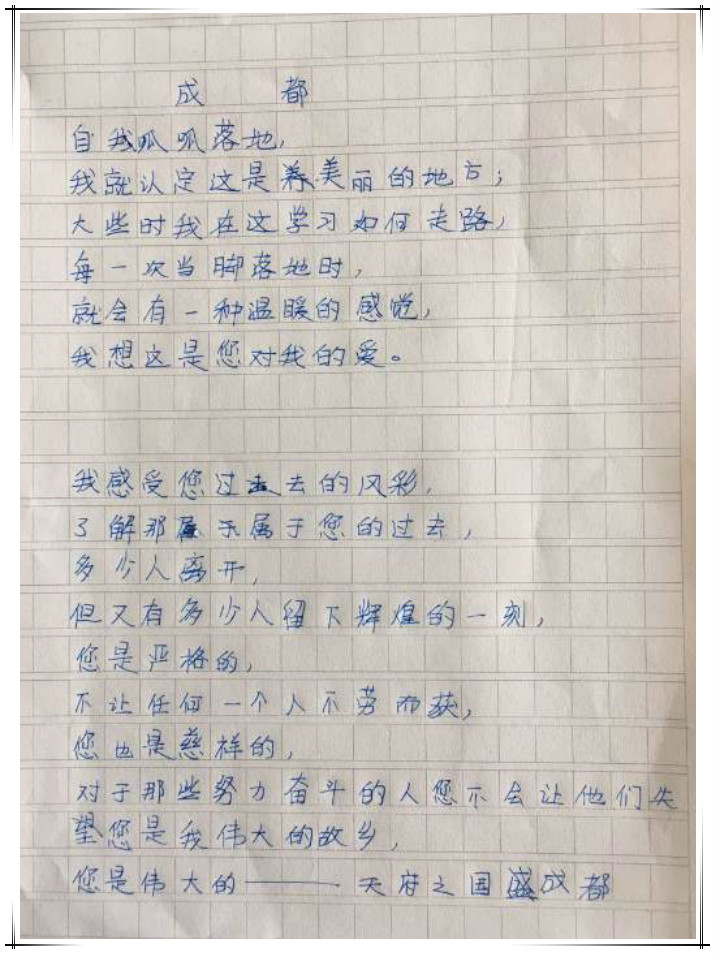 成都
自我呱呱落地，
我就认定这是美丽的地方；
大些时我在这学习如何走路，
每一次当脚落地时，
就会有一种温暖的感觉，
我想这是您对我的爱。
我感受您过去的风彩，
了解那属于您的过去，
多少人离开，
但又有多少人留下辉煌的一刻，
您是严格的，
不让任何一个人不劳而获，
您也是慈祥的，
对于那些努力奋斗的人您不会让他们失
望您是我伟大的故乡，
您是伟大的——天府之国成都